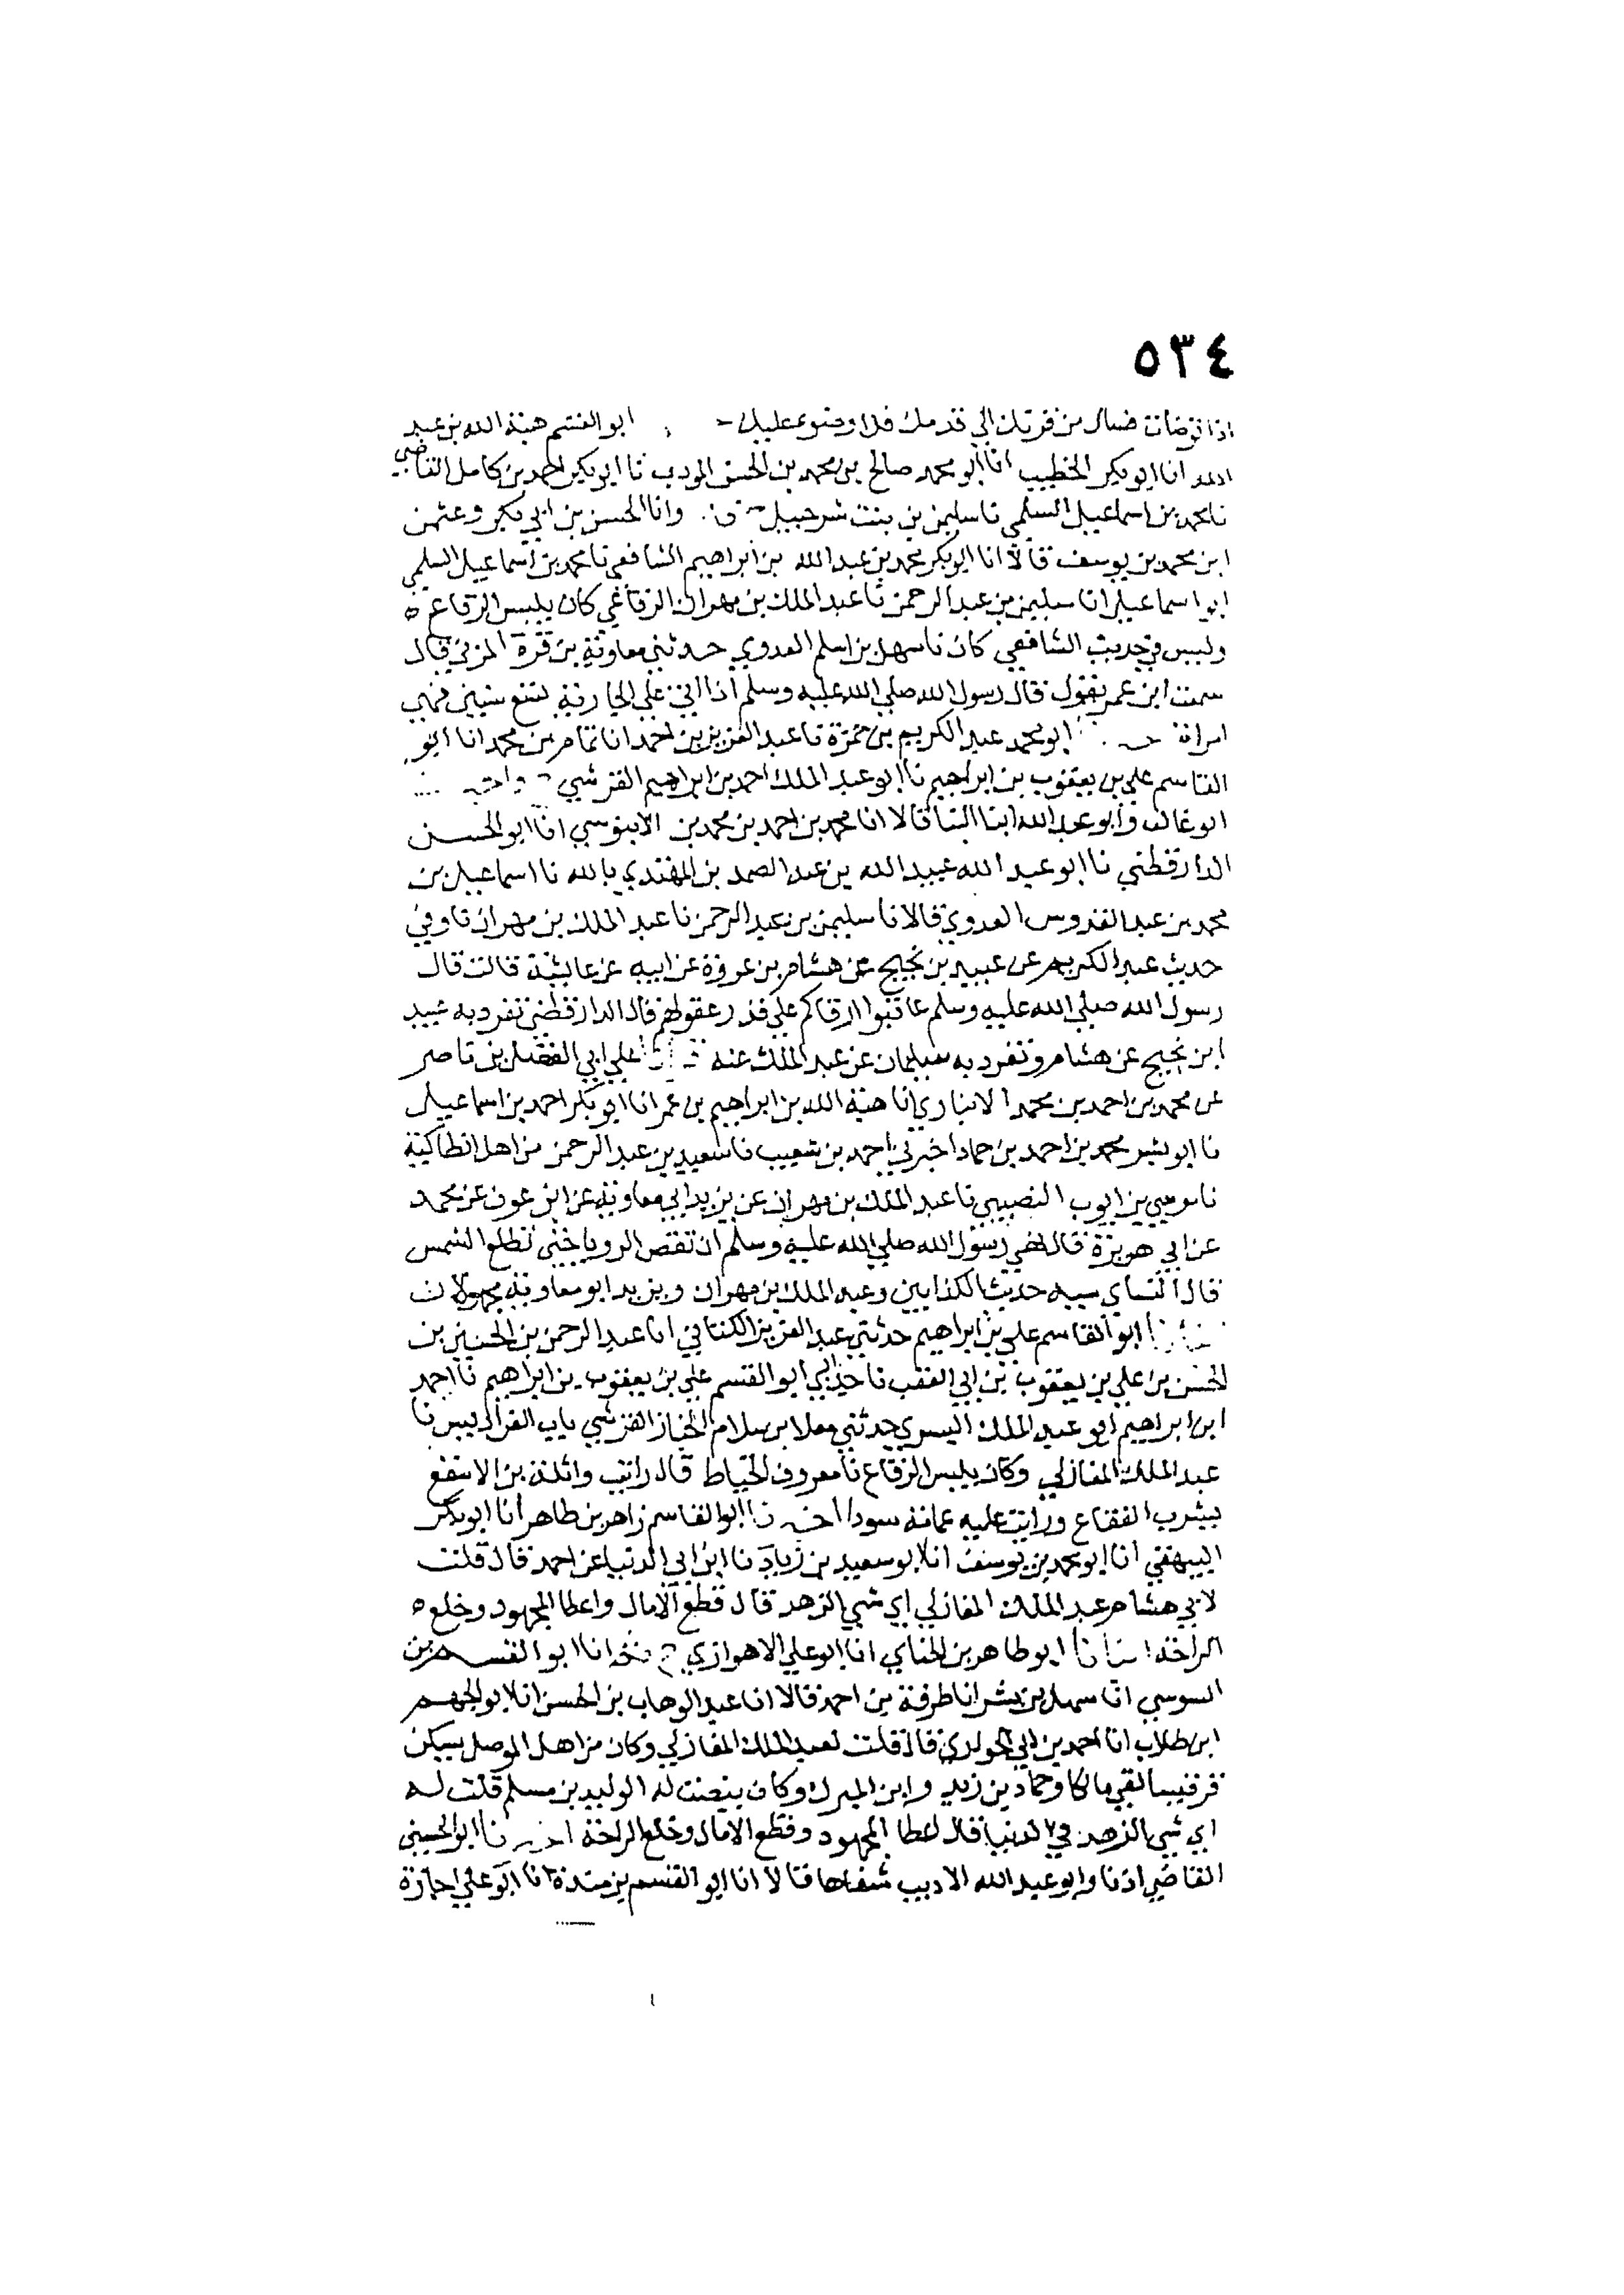 ٥٣٤
اذا توضات فسال من قرنك الي قدمك فلا وضوء عليك ابو القسم هبة الله بن عبد
الله انا ابو بكر الخطيب انا ابو محمد صالح بن محمد بن الحسن المودب نا ابو بكر احمد بن كامل القاضي
نا محمد بن اسماعيل السلمي نا سليمن بن بنت شرحبيل وانا الحسن بن ابي بكر وعثمن
ابن محمد بن يوسف قالا انا ابو بكر محمد بن عبد الله بن ابراهيم الشافعي نا محمد بن اسماعيل السلمي
ابو اسماعيل انا سليمن بن عبد الرحمن نا عبد الملك بن مهران الرقاعي كان يلبس الرقاع ه
وليس في حديث الشافعي كان نا سهل بن اسلم العدوي حدثني معاوية بن قرة المزني قال
سمعت ابن عمر يقول قال رسول الله صلي الله عليه وسلم اذا اتي علي الجارية تسع سنين فهي
امراة ابو محمد عبد الكريم بن حمزة نا عبد العزيز بن احمد انا تمام بن محمد انا ابو
القاسم علي بن يعقوب بن ابراهيم نا ابو عبد الملك احمد بن ابراهيم القرشي
ابو غالب وابو عبد الله ابنا البنا قالا انا محمد بن احمد بن محمد بن الابنوسي انا ابو الحسن
الدارقطني نا ابو عبد الله عبيد الله بن عبد الصمد بن المهتدي بالله نا اسماعيل بن
محمد بن عبد القدوس العدوي قالا نا سليمن بن عبد الرحمن نا عبد الملك بن مهران نا وفي
حديث عبد الكريم عن عبيد بن نجيح عن هشام بن عروة عن ابيه عن عايشة قالت قال
رسول الله صلي الله عليه وسلم عاقبوا ارقاكم علي قدر عقولهم قال الدارقطني تفرد به عبيد
ابن نجيح عن هشام وتفرد به سليمان عن عبد الملك عنه علي ابي الفضل بن ناصر
عن محمد بن احمد بن محمد الانباري انا هبة الله بن ابراهيم بن عمر انا ابو بكر احمد بن اسماعيل
نا ابو بشر محمد بن احمد بن حماد اخبرني احمد بن شعيب نا سعيد بن عبد الرحمن من اهل انطاكية
نا موسي بن ايوب النصيبي نا عبد الملك بن مهران عن يزيد ابي معاوية عن ابن عون عن محمد
عن ابي هريرة قال نهي رسول الله صلي الله عليه وسلم ان تقص الرويا حتي تطلع الشمس
قال النساي يشبه حديث الكذابين وعبد الملك بن مهران ويزيد ابو معاوية مجهولان
ابو القاسم علي بن ابراهيم حدثني عبد العزيز الكتاني انا عبد الرحمن بن الحسين بن
الحسن بن علي بن يعقوب بن ابي العقب نا جد ابي ابو القسم علي بن يعقوب بن ابراهيم نا احمد
ابن ابراهيم ابو عبد الملك البسري حدثني معلا بن سلام الخباز القرشي باب الفراديس نا
عبد الملك المغازلي وكان يلبس الرقاع نا معروف الخياط قال رايت واثلة بن الاسقع
يشرب الفقاع ورايت عليه عمامة سودا اخبرنا ابو القاسم زاهر بن طاهر انا ابو بكر
البيهقي انا ابو محمد بن يوسف انا ابو سعيد بن زياد نا ابن ابي الدنيا عن احمد قال قلت
لابي هشام عبد الملك المغازلي اي شي الزهد قال قطع الامال واعطا المجهود وخلع ه
الراحة انبانا ابو طاهر بن الحناي انا ابو علي الاهوازي ح انا ابو القسم بن
السوسي انا سهل بن بشر انا طرفة بن احمد قالا انا عبد الوهاب بن الحسن انا ابو الجهم
ابن طلاب انا احمد بن ابي الحواري قال قلت لعبد الملك المغازلي وكان من اهل الموصل يسكن
قرقيسيا لقي مالكا وحماد بن زيد وابن المبرك وكان ينصت له الوليد بن مسلم قلت له
اي شي الزهد في الدنيا قال اعطا المجهود وقطع الامال وخلع الراحة اخبرنا ابو الحسين
القاضي اذنا وابو عبد الله الاديب شفاها قالا انا ابو القسم بن مندة انا ابو علي اجازة